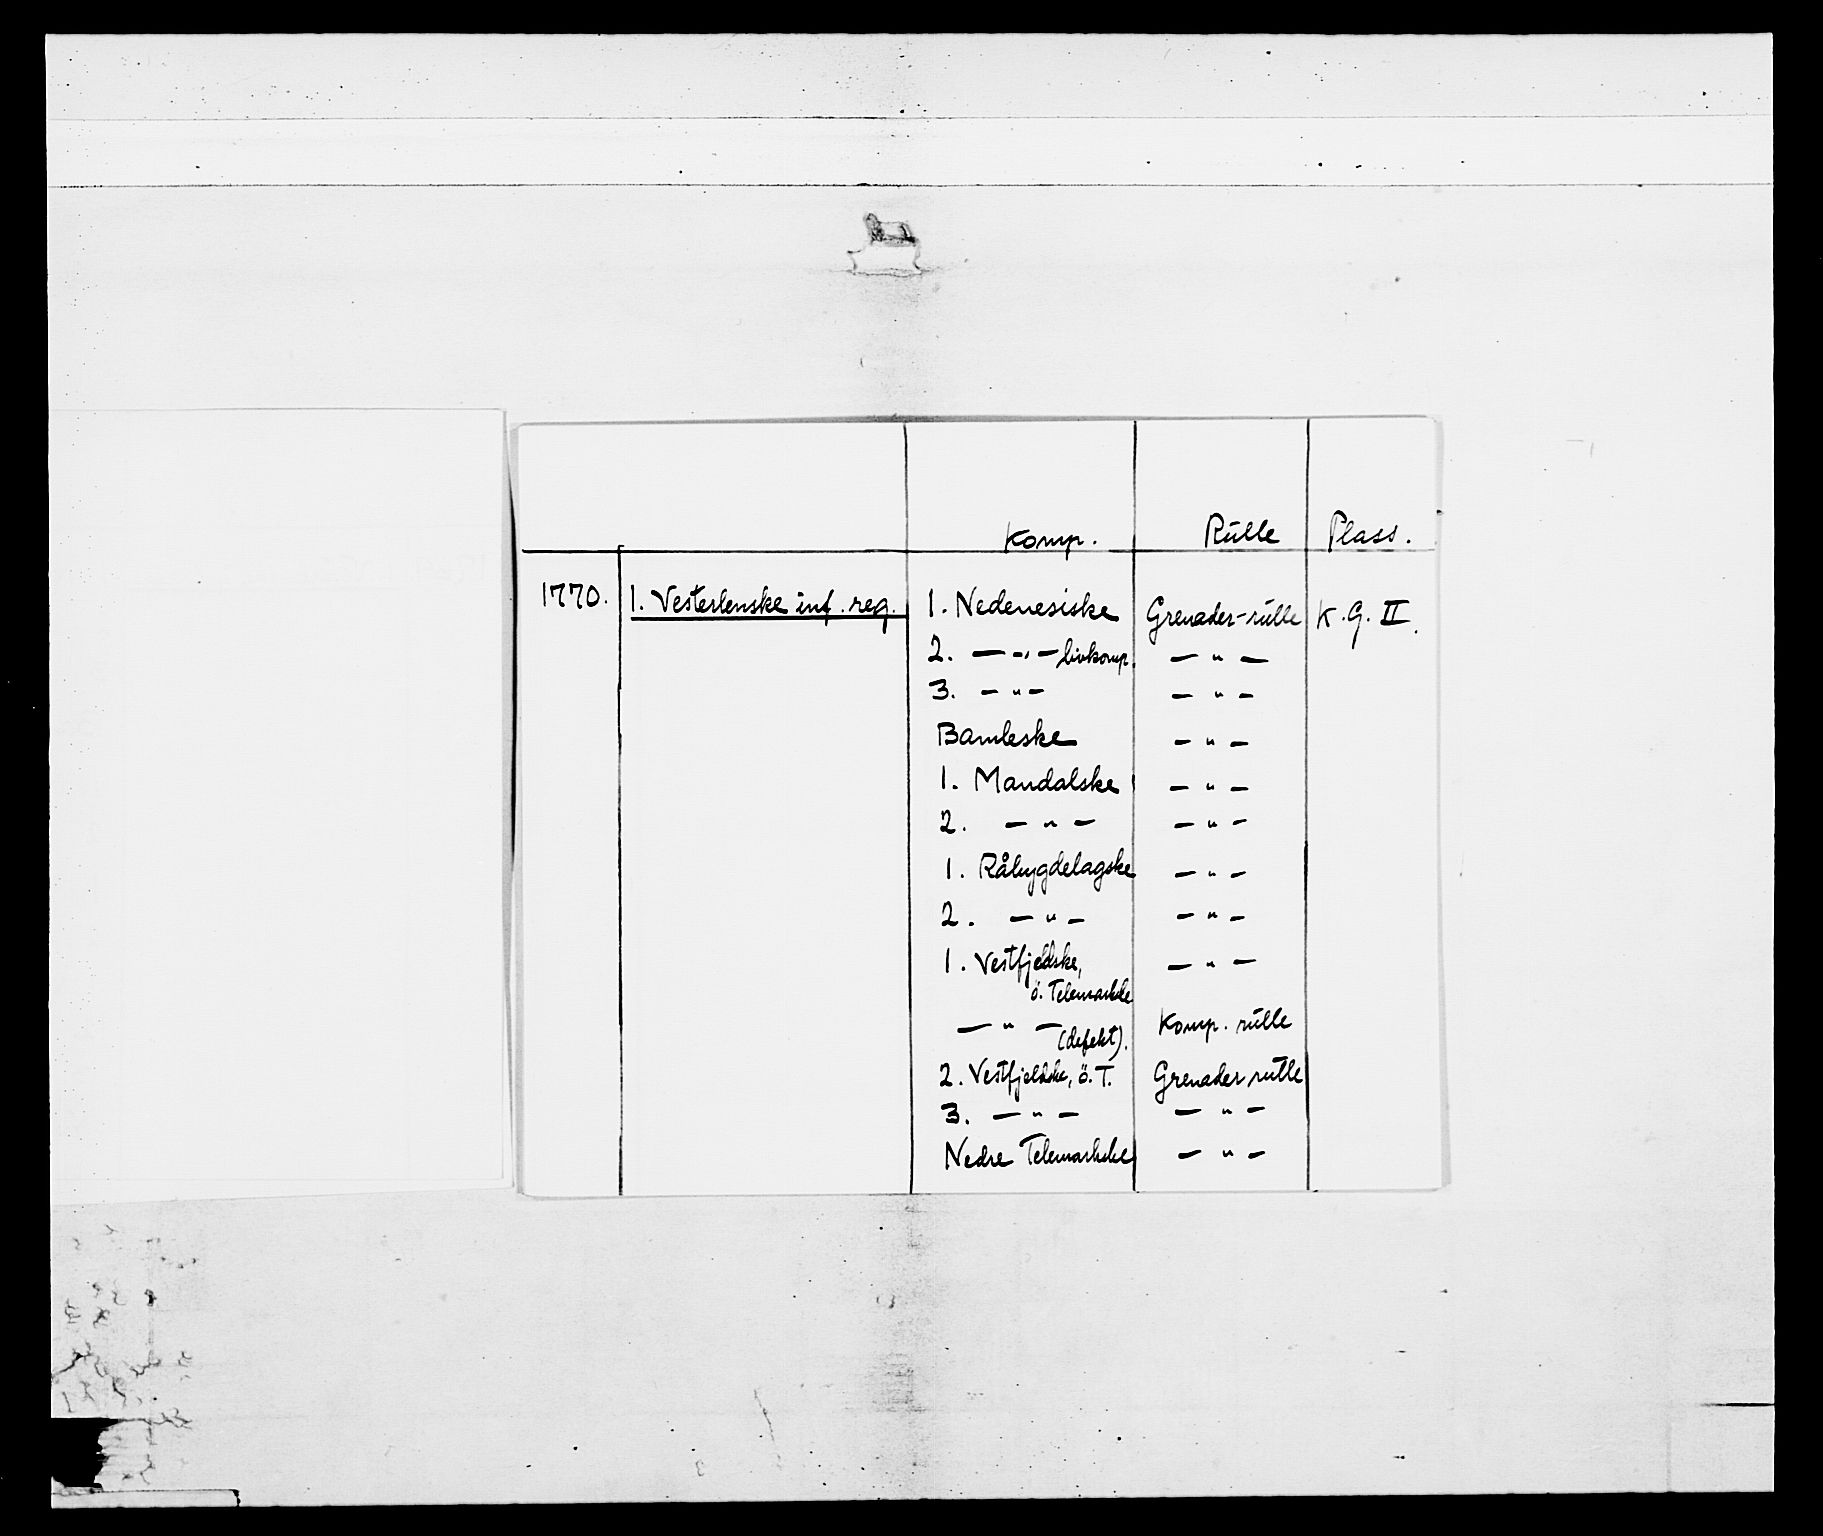 Komp. Rulle Plass.
1770. 1. Vesterlenske inf. reg. 1. Nedenesiske Grenader-rulle K.G. II.
2. — " — livkomp. — " —
3. — " — — " —
Bamleske — " —
1. Mandalske — " —
2. — " — — " —
1. Råbygdelagske — " —
2. — " — — " —
1. Vestfjeldske, — " —
ö. Telemarkske
— " — (defekt). Komp. rulle
2. Vestfjeldske, ö. T. Grenader rulle
3. — " — — " —
Nedre Telemarkske — " —